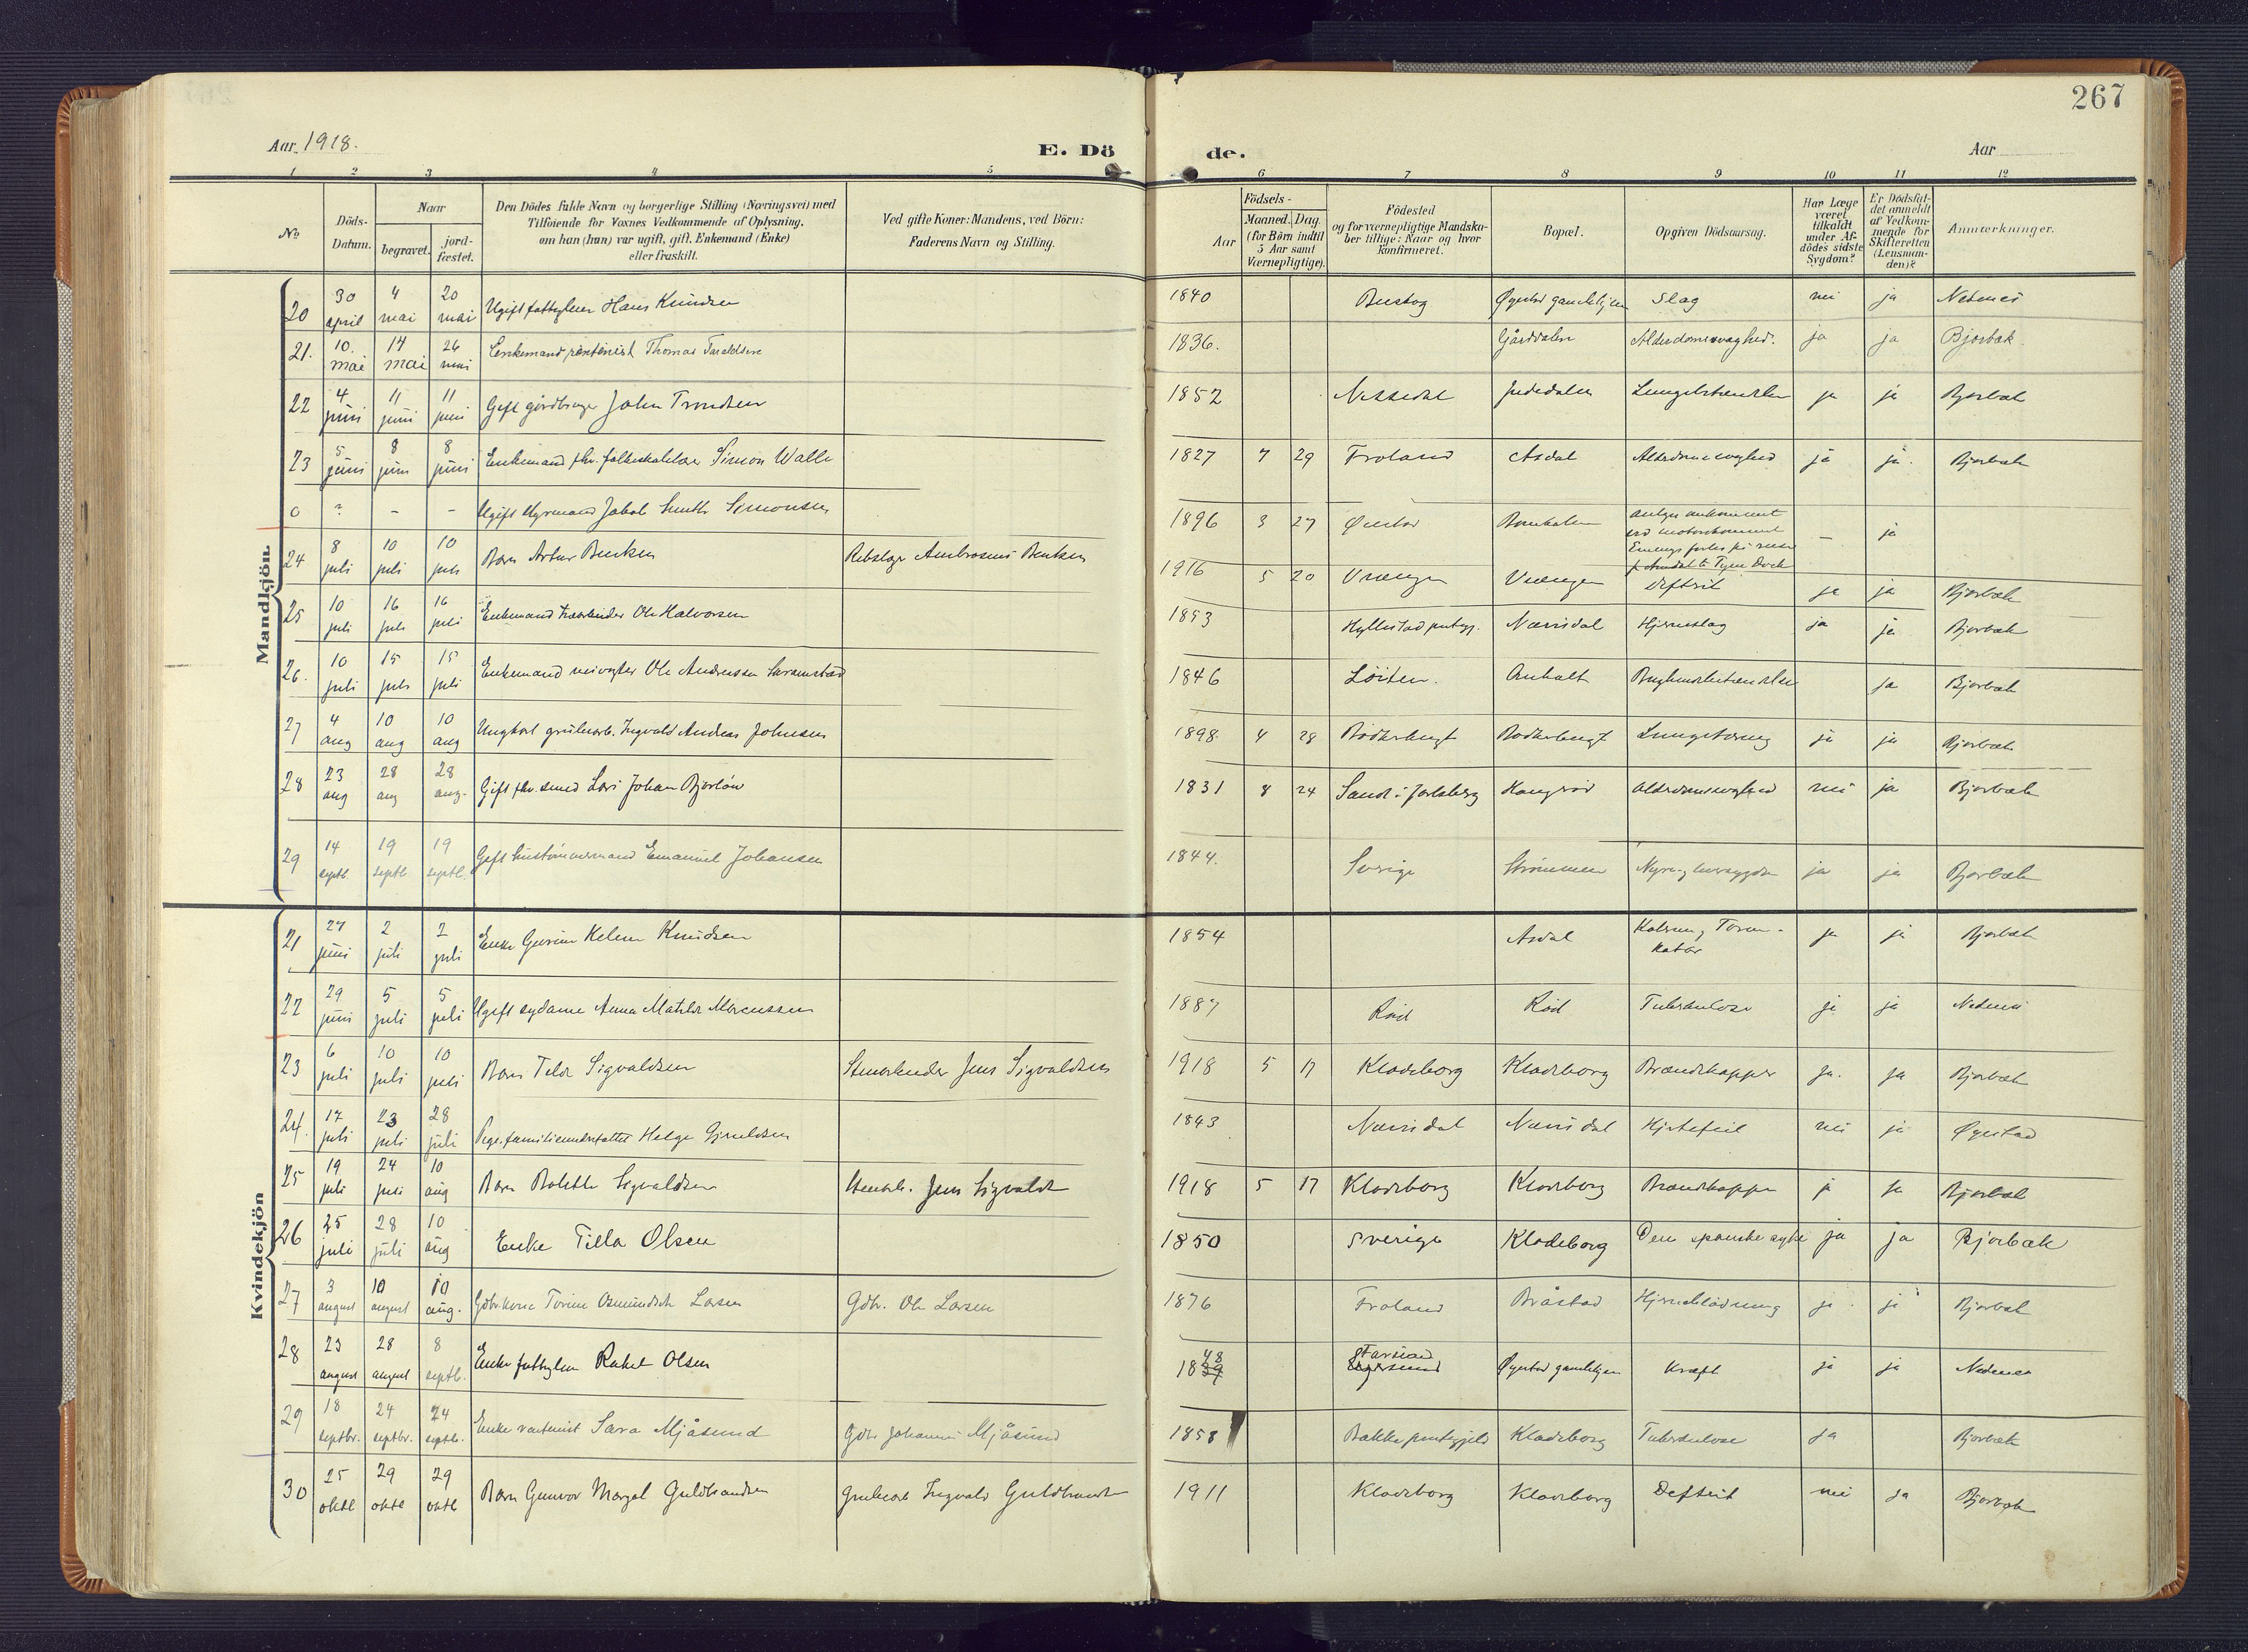 267
Aar 1918.
E. Dö de.
Aar
1 2 3 4 5 6 7 8 9 10 11 12
No
Döds-Datum.
Naar
begravet.
jord-fæstet.
Den Dödes fulde Navn og borgerlige Stilling (Næringsvei) med
Tilföiende for Voxnes Vedkommende af Oplysning,
om han (hun) var ugift, gift, Enkemand (Enke)
eller fraskilt.
Ved gifte Koner: Mandens, ved Börn:
Faderens Navn og Stilling.
Födsels-
Aar
Maaned. Dag.
(for Börn indtil
5 Aar samt
Værnepligtige).
Födested
og for værnepligtige Mandska-
ber tillige: Naar og hvor
Konfirmeret.
Bopæl.
Opgiven Dödsaarsag.
Har Læge
været
tilkaldt
under Af-
dödes sidste
Sygdom?
Er Dödsfal-
det anmeldt
af Vedkom-
mende for
Skifteretten
(Lensman-
den)?
Anmærkninger.
Mandkjön.
20 30 april 4 mai 20 mai Ugift Hans Knudsen 1840 Øyestad gamlehjem Slag nei ja Nedenes
21. 10. mai 14 mai 26 mai Enkemand rentenist Thomas Taraldsen 1836. Gårdalen Alderdomssvaghed. ja ja Bjorbæk.
22 4 juni 11 juni 11 juni Gift gårdbruger John Trondsen 1852 Nissedal Lungebetændelse ja ja Bjorbæk
23 5 juni 8 juni 8 juni Enkemand fhv. folkeskolelærer Simon Walle 1827 7 29 Froland Asdal Alderdomssvaghed ja ja. Bjorbæk
0 ? - - Ugift styrmand Jakob Smith Simonsen 1896 3 27 Øiestad antages omkommet
ved motorskonnert
forlis på reise
fra Arendal til Tyne Dock - ja
24 8 juli 10 juli 10 juli Barn Artur Bentsen Rebslager Ambrosius Bentsen 1916 5 20 Vrængen Vrængen Difteri ja ja Bjorbæk
25 10 juli 16 juli 16 juli Enkemand Ole Halvorsen 1853 Hyllestad prstgj. Næsisdal Hjerneslag ja ja Bjorbæk
26. 10 juli 15 juli 15 juli Enkemand veivogter Ole Andreassen 1846 Löiten. Anholt ja Bjorbæk
27 4 aug 10 aug 10 aug Ungkarl grubearb. Ingvald Andreas Johnsen 1898 4 28 ja ja Bjorbæk
28 23 aug 28 aug 28 aug. Gift fhv. smed Lars Johan Bjorlöw 1831 8 24 Sande i Jarlsberg Alderdomssvaghed nei ja Bjorbæk
29 14 septb. 19 septb 19 septb. Gift hustömmermand Emanuel Johansen 1844. Sverige Strömmen Nyre og ja ja Bjorbæk
Kvindekjön
21 27 juni 2 juli 2 juli Enke Gurine Helene Knudsen 1854 Asdal ja ja Bjorbæk
22 29 juni 5 juli 5 juli Ugift sydame Anna Matilde Marcussen 1887 Röd Röd Tuberkulose ja ja Nedenes
23 6 juli 10 juli 10 juli Barn Tilda Sigvaldsen Stenarbeider Jens Sigvaldsen 1918 5 17 Klodeborg Klodeborg Brændkopper ja. ja Bjorbæk
24. 17 juli 23 juli 28 juli Pige, familieunderstöttet Helge Gjruldsen 1843 Hjertefeil nei ja Øyestad
25 19 juli 24 juli 10 aug Barn Bolette Sigvaldsen Stenarb. Jens Sigvaldsen 1918 5 17 Klodeborg Klodeborg Brændkopper ja ja Bjorbæk
26 25 juli 28 juli 10 aug Enke Tilla Olsen 1850 Sverige Klodeborg Den spanske syke ja ja Bjorbæk
27 3 august 10 august 10 aug. Gdbr.kone Torine Osmundsdt. Larsen Gdbr. Ole Larsen 1876 Froland Bråstad Hjerneblödning ja ja Bjorbæk
28 23 august 28 august 8 septb. Enke fattiglem Rakel Olsen 1839 48 Egersund Farsund Øyestad gamlehjem Kræft ja ja Nedenes
29 18 septbr. 24 septbr. 24 septb. Enke rentenist Sara Mjåsund Gdbr Johannes Mjåsund 1858 Bakke prestegjeld Klodeborg Tuberkulose ja Bjorbæk
30 25 oktb 29 oktb 29 oktb Barn Gunvor Margit Guldbrandsen Grubearb Ingvald Guldbrandsen 1911 Klodeborg Klodeborg Difteri nei ja Bjorbæk